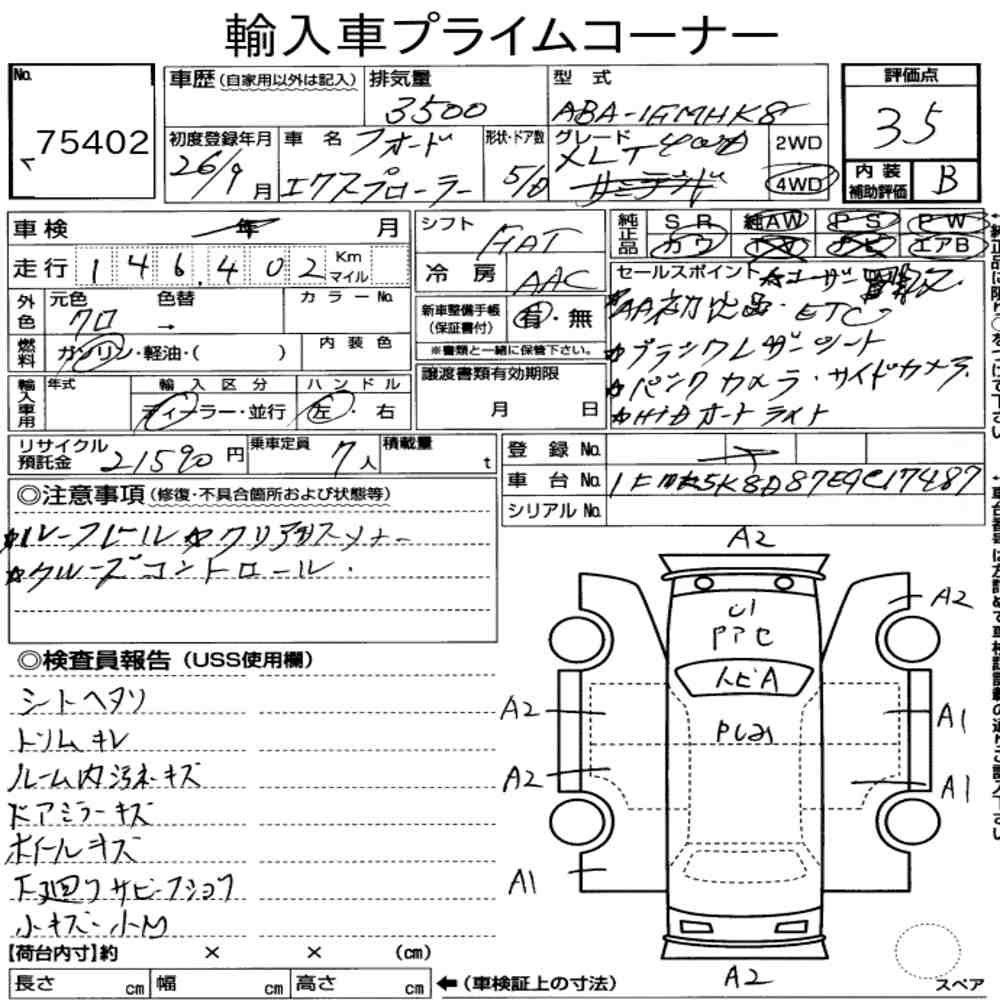 輸入車プライムコーナー
No. 75402
車歴 (自家用以外は記入)
排気量 3500
型式 ABA-1FMHK8
評価点 3.5
初度登録年月 26/9月
車名 フォード エクスプローラー
形状・ドア数 5/D
グレード XLT
2WD
4WD
内装補助評価 B
車検 年 月
走行 146,402 Km マイル
シフト FAT
冷房 AAC
純正品 SR 純AW PS PW
カワ TV ナビ エアB
外色 元色 クロ 色替 → カラーNo.
燃料 ガソリン・軽油・( ) 内装色
新車整備手帳 (保証書付) 有・無
※書類と一緒に保管下さい。
セールスポイント
ETC
☆ブラックレザーシート
☆バックカメラ・サイドカメラ
☆HIDオートライト
輸入車用 年式 輸入区分 ディーラー・並行 ハンドル 左・右
譲渡書類有効期限 月 日
リサイクル預託金 21590円
乗車定員 7人
積載量 t
登録No.
車台No.
シリアルNo.
◎注意事項 (修復・不具合箇所および状態等)
☆ルーフレール ☆クリアランスソナー
☆クルーズコントロール.
◎検査員報告 (USS使用欄)
シートヘタリ
トリムキレ
ルーム内汚れキズ
ドアミラーキズ
ホイールキズ
下廻りサビ・フショク
小キズ・小凹
A2
A2
U1
トビA
A2
A1
A2
A1
A1
A2
【荷台内寸】約 × × (cm)
長さ cm 幅 cm 高さ cm ←(車検証上の寸法)
スペア